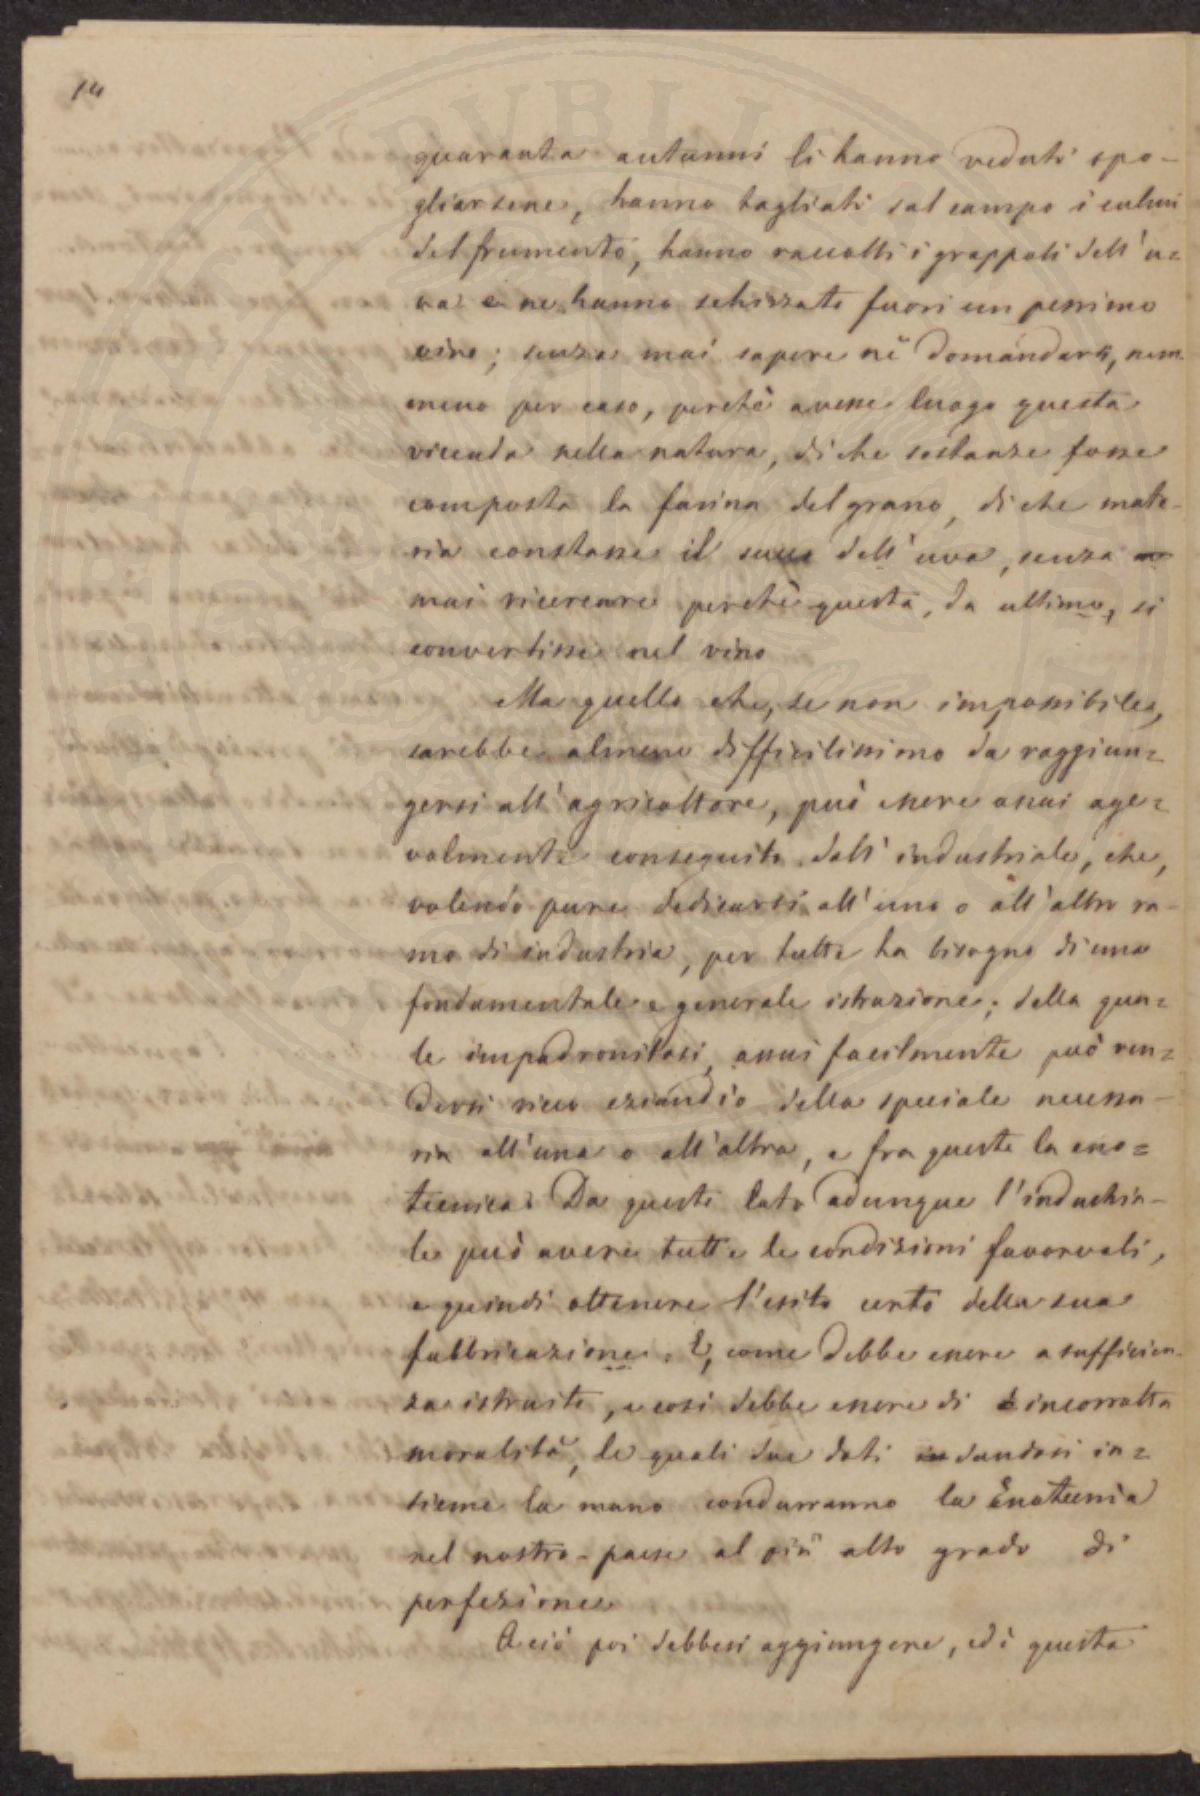 14
quaranta autunni li hanno veduti spo-
gliarsene, hanno tagliati sal campo i culmi
del frumento, hanno raccolti i grappoli dell'u=
va e ne hanno schizzato fuori un pessimo
vino; senza mai sapere nè domandarsi, nem
meno per caso, perchè avesse luogo questa
vicenda nella natura, di che sostanze fosse
composta la farina del grano, di che mate-
ria constasse il succo dell'uva, senza
mai ricercare perchè questa, da ultimo, si
convertisse nel vino
Ma quello che, se non impossibile,
sarebbe almeno difficilissimo da raggiun=
gersi all'agricoltore, può essere assai age=
volmente conseguito dall'industriale, che,
volendo pure dedicarsi all'uno o all'altro ra-
mo di industria, per tutte ha bisogno di una
fondamentale e generale istruzione; della qua=
le impadronitosi, assai facilmente può ren=
dersi ricco eziandio della speciale necessa-
ria all'una o all'altra, e fra queste la eno=
tecnica. Da questo lato adunque l'industria-
le può avere tutte le condizioni favorevoli,
e quindi ottenere l'esito certo della sua
fabbricazione. E, come debbe essere a sufficien-
za istruito, e così debbe essere di incorrotta
moralità, le quali due doti dandosi in=
sieme la mano condurranno la Enotecnia
nel nostro paese al più alto grado di
perfezione
A ciò poi debbesi aggiungere, ed è questa